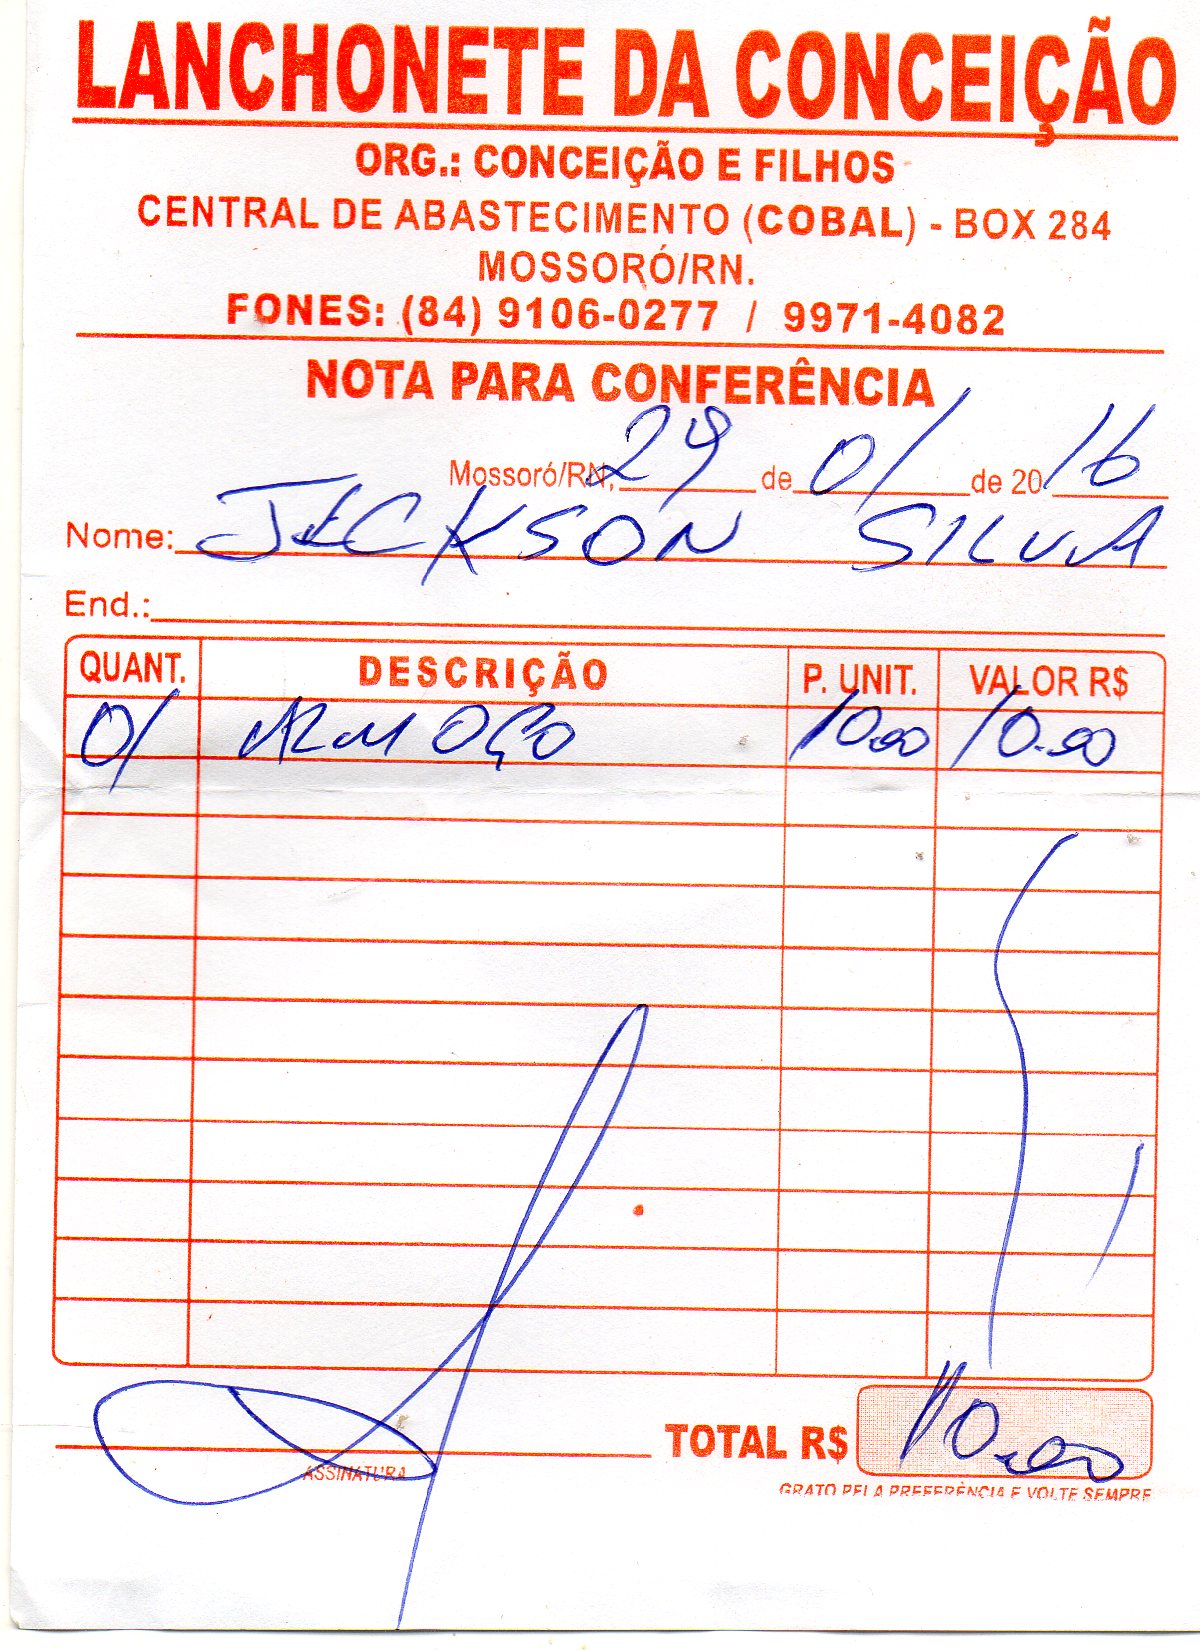 LANCHONETE DA CONCEIÇÃO
ORG.: CONCEIÇÃO E FILHOS
CENTRAL DE ABASTECIMENTO (COBAL) - BOX 284
MOSSORÓ/RN.
FONES: (84) 9106-0277 / 9971-4082
NOTA PARA CONFERÊNCIA
Mossoró/RN, 29 de 01 de 2016
Nome: JECKSON SILVA
End.:
QUANT. DESCRIÇÃO P. UNIT. VALOR R$
01 ARMOÇO 10.00 10.00
TOTAL R$ 10.00
ASSINATURA
GRATO PELA PREFERÊNCIA E VOLTE SEMPRE